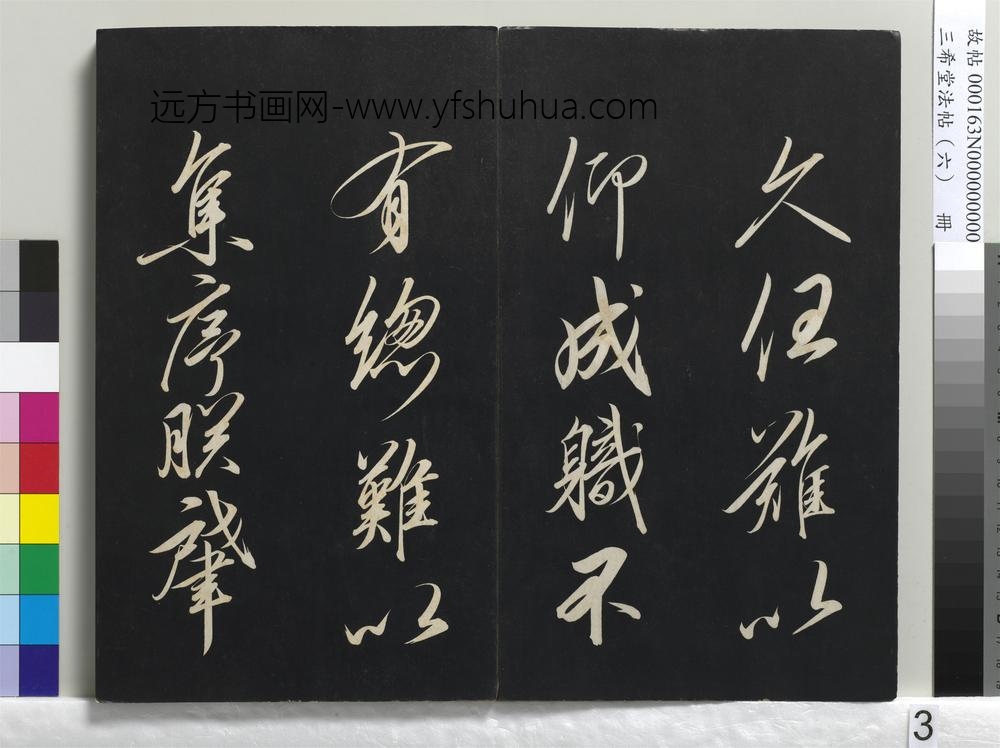 久任難以
仰成職不
有總難以
集序朕肇
远方书画网-www.yfshuhua.com
故帖 000163N000000000
三希堂法帖（六） 冊
3